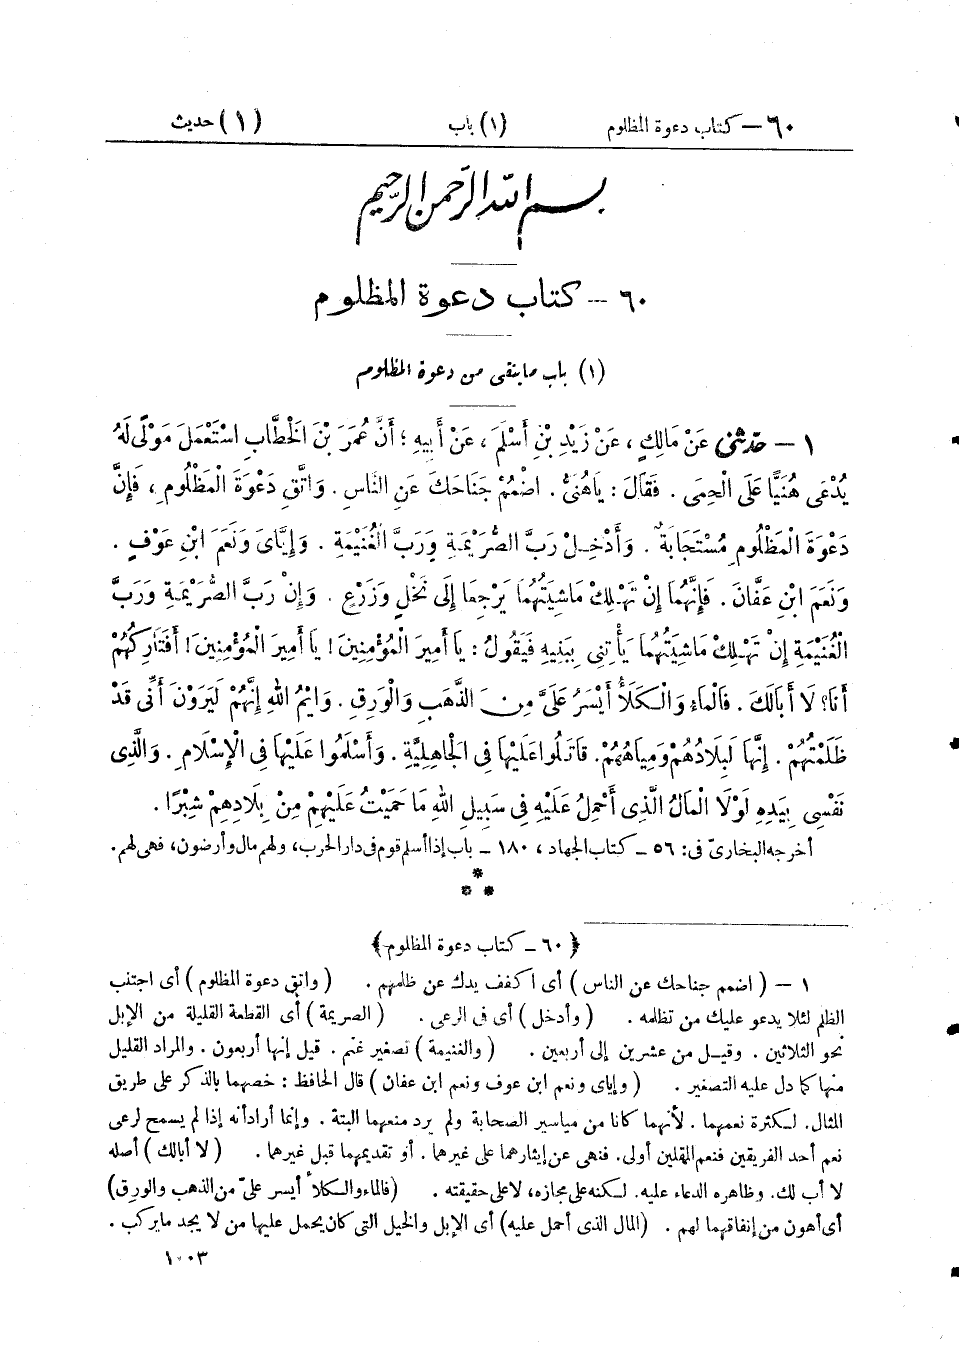 ٦٠ – كتاب دعوة المظلوم (١) باب (١) حديث
بسم الله الرحمن الرحيم
٦٠ – كتاب دعوة المظلوم
(١) باب ما يتقى من دعوة المظلوم
١ – حَدَّثَنِي عَنْ مَالِكٍ، عَنْ زَيْدِ بْنِ أَسْلَمَ، عَنْ أَبِيهِ؛ أَنَّ عُمَرَ بْنَ الْخَطَّابِ اسْتَعْمَلَ مَوْلًى لَهُ
يُدْعَى هُنَيًّا عَلَى الْحِمَى. فَقَالَ: يَاهُنَىُّ. اضْمُمْ جَنَاحَكَ عَنِ النَّاسِ. وَاتَّقِ دَعْوَةَ الْمَظْلُومِ، فَإِنَّ
دَعْوَةَ الْمَظْلُومِ مُسْتَجَابَةٌ. وَأَدْخِلْ رَبَّ الصُّرَيْمَةِ وَرَبَّ الْغُنَيْمَةِ. وَإِيَّاىَ وَنَعَمَ ابْنِ عَوْفٍ.
وَنَعَمَ ابْنِ عَفَّانَ. فَإِنَّهُمَا إِنْ تَهْلِكْ مَاشِيَتُهُمَا يَرْجِعَا إِلَى نَخْلٍ وَزَرْعٍ. وَإِنَّ رَبَّ الصُّرَيْمَةِ وَرَبَّ
الْغُنَيْمَةِ إِنْ تَهْلِكْ مَاشِيَتُهُمَا يَأْتِنِى بِبَنِيهِ فَيَقُولُ: يَا أَمِيرَ الْمُؤْمِنِينَ! يَا أَمِيرَ الْمُؤْمِنِينَ! أَفَتَارِكُهُمْ
أَنَا؟ لَا أَبَالَكَ. فَالْمَاءُ وَالْكَلَأُ أَيْسَرُ عَلَىَّ مِنَ الذَّهَبِ وَالْوَرِقِ. وَايْمُ اللهِ إِنَّهُمْ لَيَرَوْنَ أَنِّى قَدْ
ظَلَمْتُهُمْ. إِنَّهَا لَبِلَادُهُمْ وَمِيَاهُهُمْ. قَاتَلُوا عَلَيْهَا فِى الْجَاهِلِيَّةِ. وَأَسْلَمُوا عَلَيْهَا فِى الْإِسْلَامِ. وَالَّذِى
نَفْسِى بِيَدِهِ لَوْلَا الْمَالُ الَّذِى أَحْمِلُ عَلَيْهِ فِى سَبِيلِ اللهِ مَا حَمَيْتُ عَلَيْهِمْ مِنْ بِلَادِهِمْ شِبْرًا.
أخرجه البخارىّ فى: ٥٦ – كتاب الجهاد، ١٨٠ – باب إذا أسلم قوم فى دار الحرب، ولهم مال وأرضون، فهى لهم.
*
* *
﴿٦٠ – كتاب دعوة المظلوم﴾
١ – (اضمم جناحك عن الناس) أى اكفف يدك عن ظلمهم. (واتق دعوة المظلوم) أى اجتنب
الظلم لئلا يدعو عليك من تظلمه. (وأدخل) أى فى الرعى. (الصريمة) أى القطعة القليلة من الإبل
نحو الثلاثين. وقيل من عشرين إلى أربعين. (والغنيمة) تصغير غنم. قيل إنها أربعون. والمراد القليل
منها كما دل عليه التصغير. (وإياى ونعم ابن عوف ونعم ابن عفان) قال الحافظ: خصهما بالذكر على طريق
المثال. لكثرة نعمهما. لأنهما كانا من مياسير الصحابة ولم يرد منعهما البتة. وإنما أراد أنه إذا لم يسمح لرعى
نعم أحد الفريقين فنعم المقلين أولى. فنهى عن إيثارهما على غيرهما. أو تقديمهما قبل غيرهما. (لا أبالك) أصله
لا أب لك. وظاهره الدعاء عليه. لكنه على مجازه، لا على حقيقته. (فالماء والكلأ أيسر علىّ من الذهب والورق)
أى أهون من إنفاقهما لهم. (المال الذى أحمل عليه) أى الإبل والخيل التى كان يحمل عليها من لا يجد ما يركب.
١٠٠٣